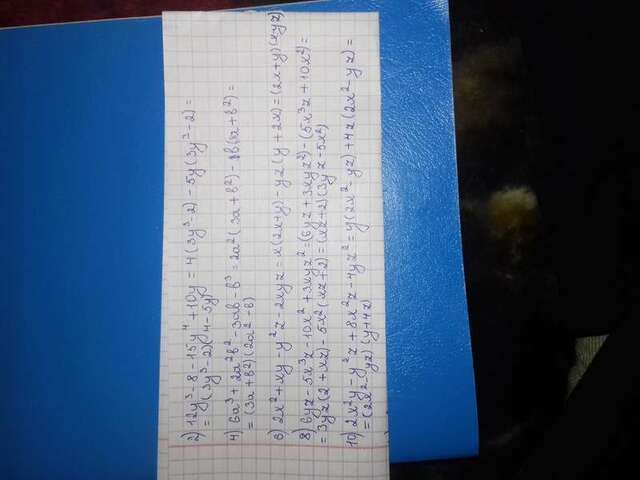 2) 12y³ - 8 - 15y⁴ + 10y = 4(3y³-2) - 5y(3y³-2) =
= (3y³-2)(4-5y)
4) 6a³ + 2a²b² - 3ab - b³ = 2a²(3a + b²) - b(3a + b²) =
= (3a + b²)(2a² - b)
6) 2x² + xy - y²z - 2xyz = x(2x+y) - yz(y + 2x) = (2x+y)(xyz)
8) 6yz - 5x³z - 10x² + 3xyz² = (6yz + 3xyz²) - (5x³z + 10x²) =
= 3yz(2 + xz) - 5x²(xz + 2) = (xz + 2)(3yz - 5x²)
10) 2x²y - y²z + 8x²z - 4yz² = y(2x² - yz) + 4z(2x² - yz) =
= (2x² - yz)(y + 4z)